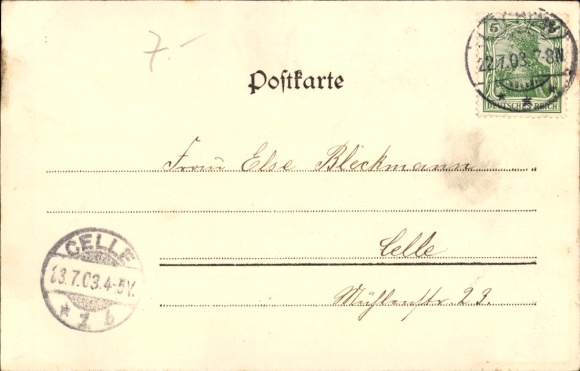 7.-
5
22.7.03.7-8N
DEUTSCHES REICH
Postkarte
Frau Else Bleckmann
Celle
CELLE
23.7.03.4-5V.
* 1 b
Mühlenstr 23.